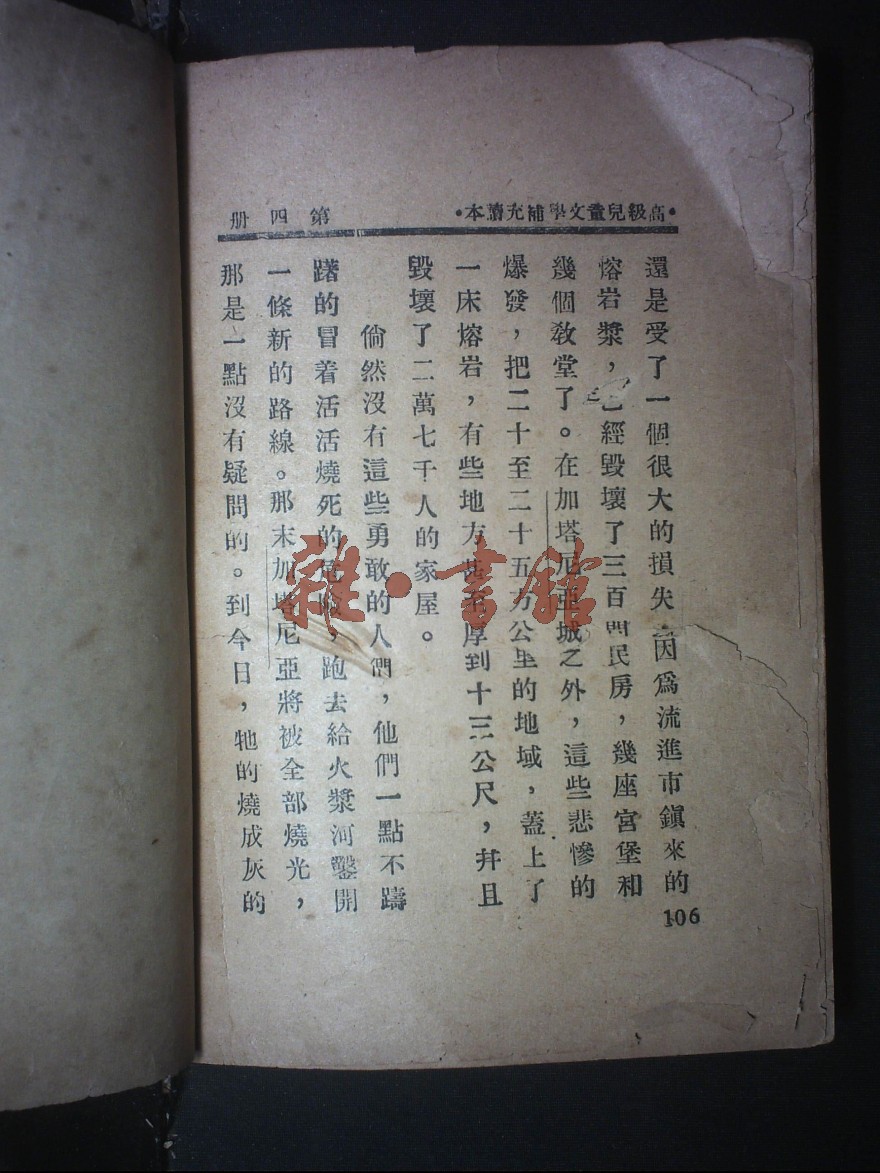 •高級兒童文學補充讀本•
第四册
還是受了一個很大的損失,因爲流進市鎭來的
熔岩漿,已經毀壞了三百四民房,幾座宮堡和
幾個敎堂了。在加塔尼亞城之外,這些悲慘的
爆發,把二十至二十五方公里的地域,蓋上了
一床熔岩,有些地方,甚至厚到十三公尺,幷且
毀壞了二萬七千人的家屋。
倘然沒有這些勇敢的人們,他們一點不躊
躇的冒着活活燒死的危險,跑去給火漿河鑿開
一條新的路線。那末加塔尼亞將被全部燒光,
那是一點沒有疑問的。到今日,牠的燒成灰的
106
雜·書館